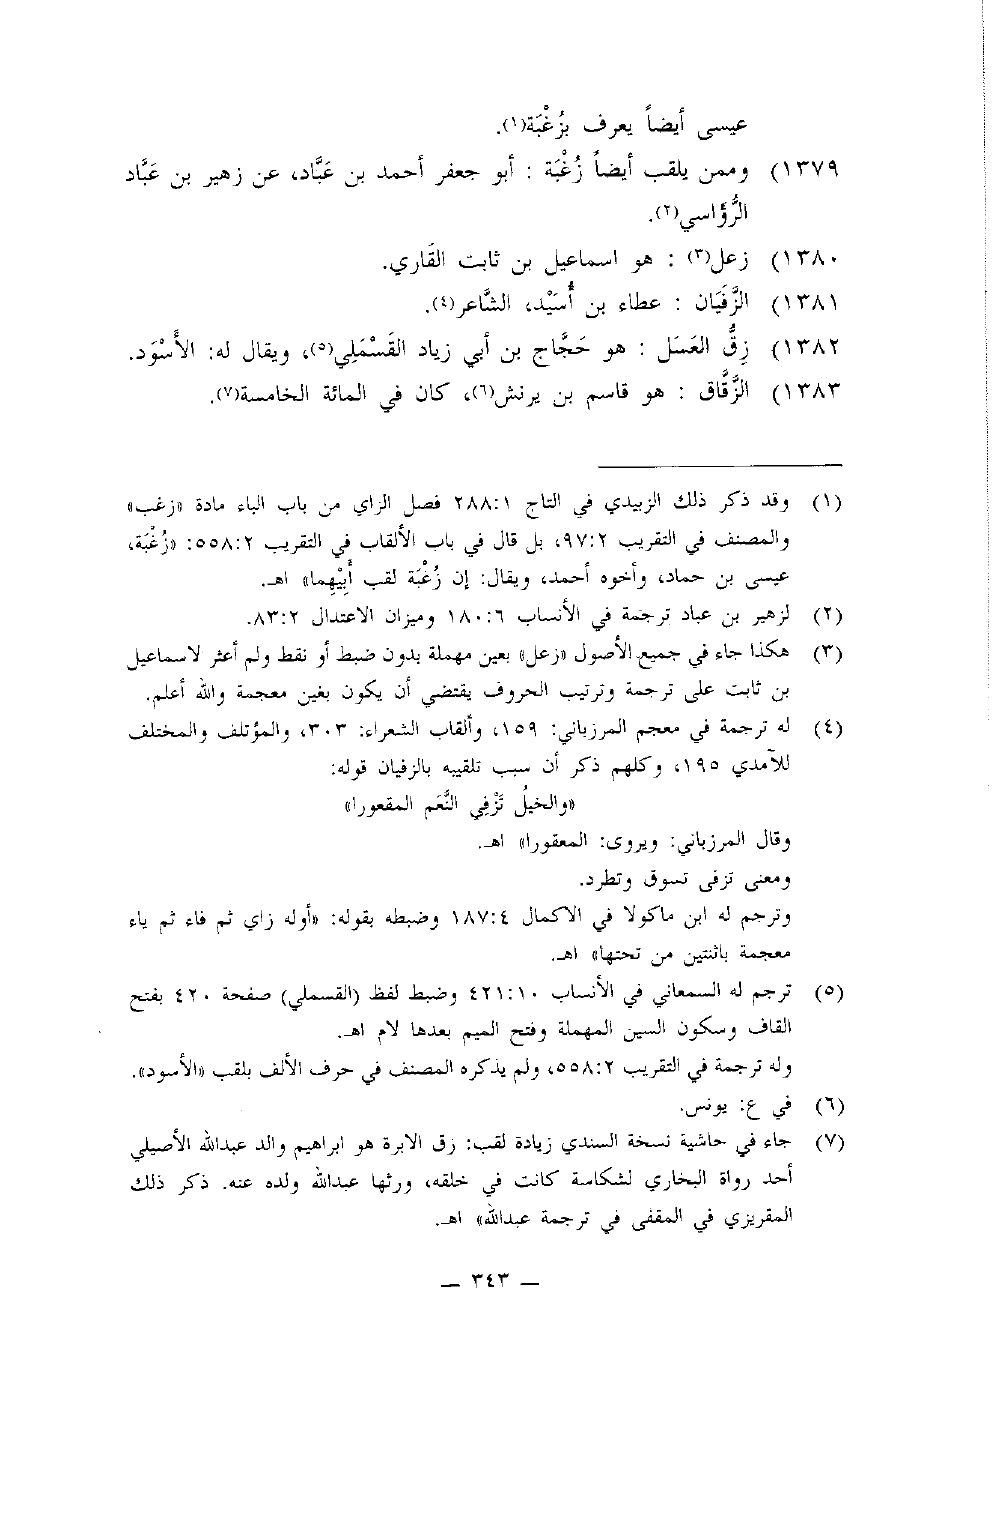 عيسى أيضاً يعرف بزُغْبَة(١).
١٣٧٩) وممن يلقب أيضاً زُغْبَة : أبو جعفر أحمد بن عَبَّاد، عن زهير بن عَبَّاد
الرُّؤَاسي(٢).
١٣٨٠) زعل(٣) : هو اسماعيل بن ثابت القَاري.
١٣٨١) الزَّفَيَان : عطاء بن أُسَيْد، الشَّاعر(٤).
١٣٨٢) زِقُّ العَسَل : هو حَجَّاج بن أبي زياد القَسْمَلِي(٥)، ويقال له: الأَسْوَد.
١٣٨٣) الزَّقَّاق : هو قاسم بن يرنش(٦)، كان في المائة الخامسة(٧).
(١) وقد ذكر ذلك الزبيدي في التاج ٢٨٨:١ فصل الزاي من باب الباء مادة «زغب»
والمصنف في التقريب ٩٧:٢، بل قال في باب الألقاب في التقريب ٥٥٨:٢: «زُغْبَة،
عيسى بن حماد، وأخوه أحمد، ويقال: إن زُغْبَة لقب أَبِيْهِما» اهـ.
(٢) لزهير بن عباد ترجمة في الأنساب ١٨٠:٦ وميزان الاعتدال ٨٣:٢.
(٣) هكذا جاء في جميع الأصول «زعل» بعين مهملة بدون ضبط أو نقط ولم أعثر لاسماعيل
بن ثابت على ترجمة وترتيب الحروف يقتضي أن يكون بغين معجمة والله أعلم.
(٤) له ترجمة في معجم المرزباني: ١٥٩، وألقاب الشعراء: ٣٠٣، والمؤتلف والمختلف
للآمدي ١٩٥، وكلهم ذكر أن سبب تلقيبه بالزفيان قوله:
«والخيلُ تَزْفِي النَّعَم المقعورا»
وقال المرزباني: ويروى: المعقورا» اهـ.
ومعنى تزفى تسوق وتطرد.
وترجم له ابن ماكولا في الاكمال ١٨٧:٤ وضبطه بقوله: «أوله زاي ثم فاء ثم ياء
معجمة باثنتين من تحتها» اهـ.
(٥) ترجم له السمعاني في الأنساب ٤٢١:١٠ وضبط لفظ (القسملي) صفحة ٤٢٠ بفتح
القاف وسكون السين المهملة وفتح الميم بعدها لام اهـ.
وله ترجمة في التقريب ٥٥٨:٢، ولم يذكره المصنف في حرف الألف بلقب «الأسود».
(٦) في ع: يونس.
(٧) جاء في حاشية نسخة السندي زيادة لقب: زق الابرة هو ابراهيم والد عبدالله الأصيلي
أحد رواة البخاري لشكاسة كانت في خلقه، ورثها عبدالله ولده عنه. ذكر ذلك
المقريزي في المقفى في ترجمة عبدالله» اهـ.
— ٣٤٣ —